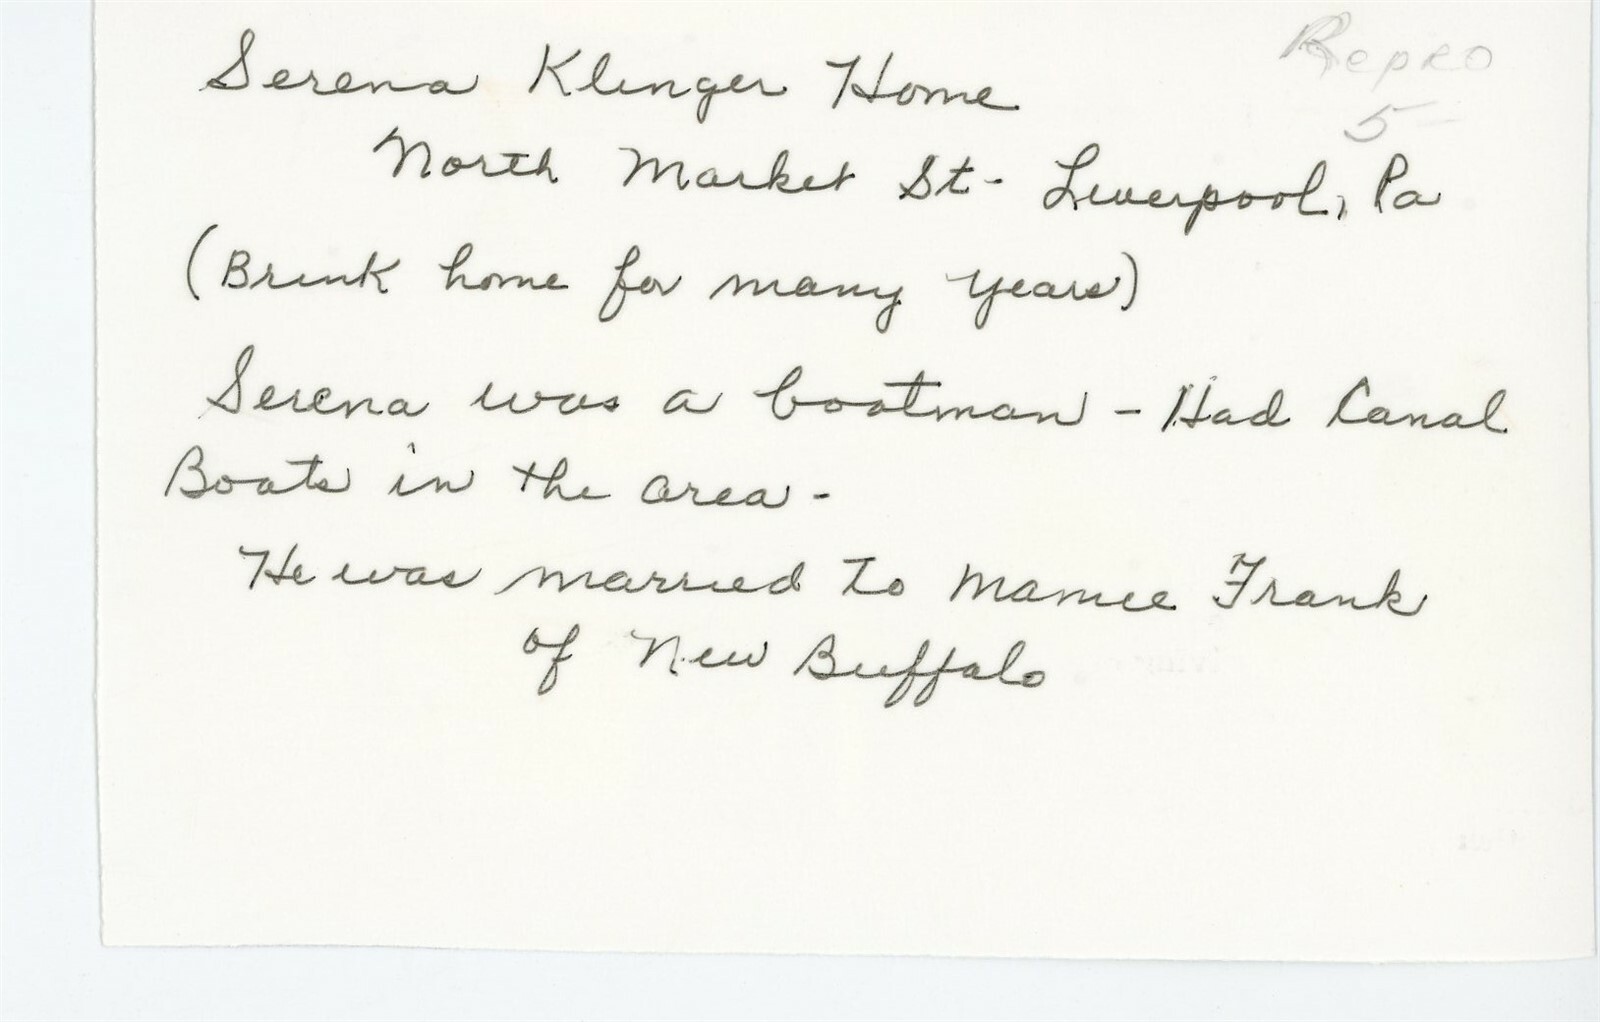 Serena Klinger Home
Repro
5-
North Market St- Liverpool, Pa
(Brink home for many years)
Serena was a boatman - Had Canal
Boats in the area -
He was married to Mamie Frank
of New Buffalo